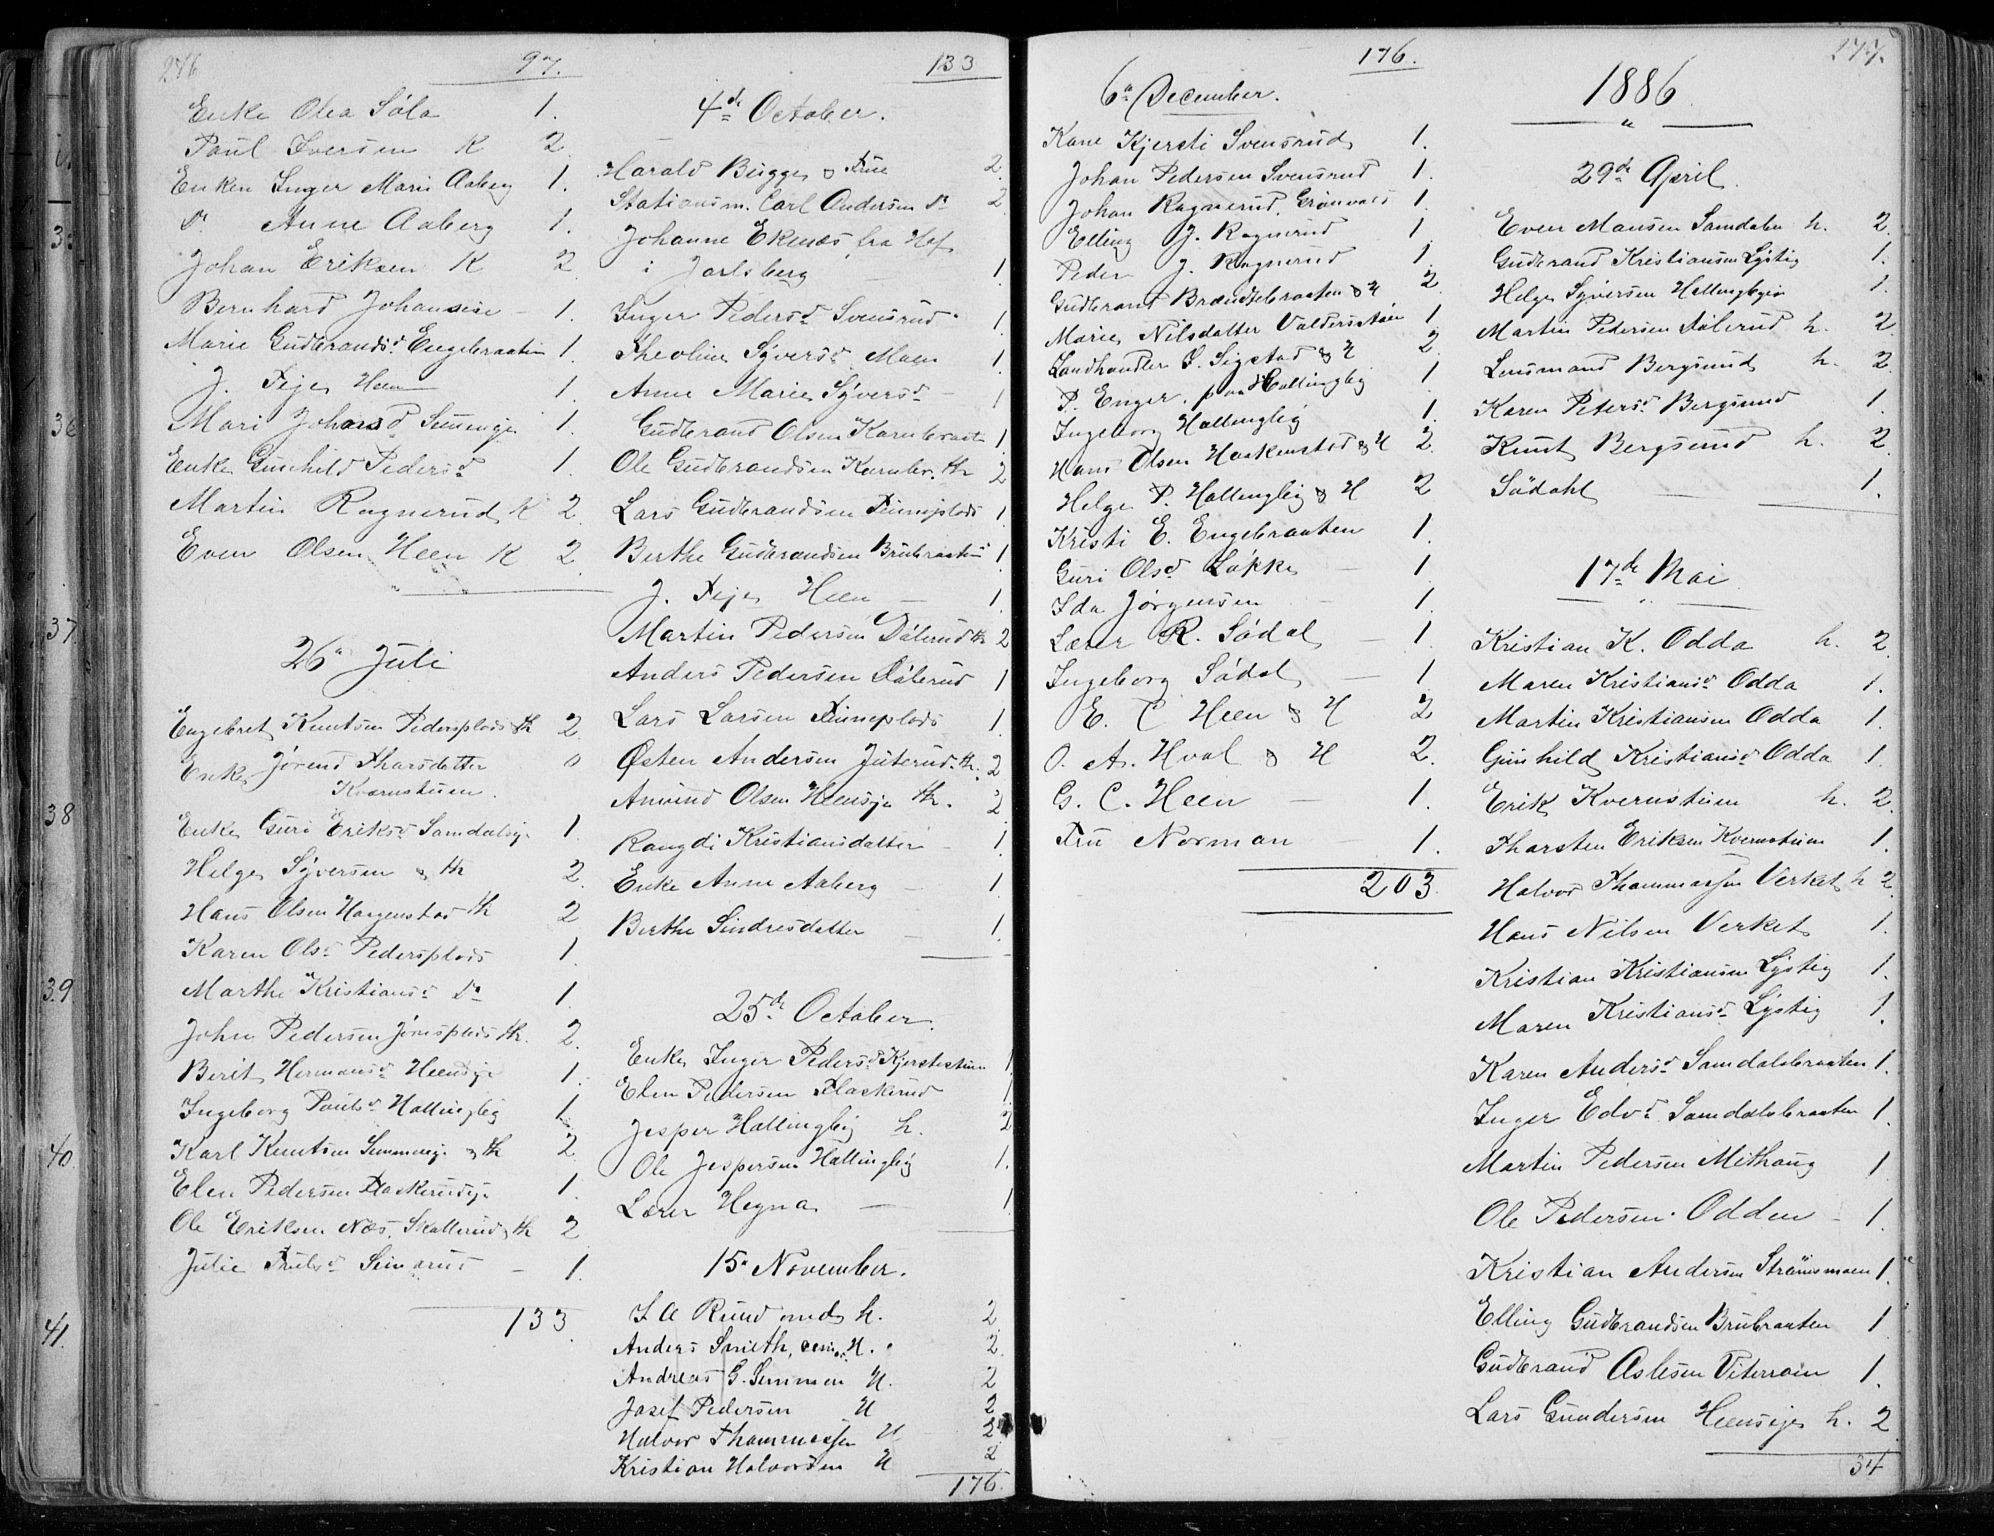 276
97.
Enke Olea Söla 1.
Paul Iversen K 2.
Enken Inger Marie Aaberg 1.
Do Anne Aaberg 1.
Johan Eriksen K 2.
Bernhard Johansen 1.
Marie Gudbrandsd. Engebraaten 1.
J. Feje Heen 1.
Mari Johansd. Semmenge 1.
Enke Gunhild Pedersd. 1.
Martin Ragnerud K 2.
Even Olsen Heen K 2.
26de Juli
Engebret Knutsen Pedersplads & th 2.
Enke Jörend Tharsdatter 0
Kvernstuen.
Enke Guri Eriksd. Samdalseje 1.
Helge Syversen & th 2.
Hans Olsen Haugenstad th 2
Karen Olsd. Pedersplads 1.
Marthe Kristiansd. Do 1.
John Pedersen Jönsplads th. 2.
Berit Hermansd. Heenseje 1.
Ingeborg Paulsd. Hallingby 1.
Karl Knutsen Semmenge & th 2
Elen Pedersen Flaskerudeje 1.
Ole Eriksen Næs, Skallerud th 2
Julie Truls d. Semmerud 1.
133.
133
4de October.
Harald Bugge & Frue 2.
Stationsm. Carl Andersen Do 2
Johanne Ekenæs fra Hof
i Jarlsberg 1
Inger Pedersd. Svensrud 1
Theoline Syversd. Moen 1.
Anne Marie Syversd. 1
Gudbrand Olsen Kornbraat 1
Ole Gudbrandsen Kornbr. th 2
Lars Gudbrandsen Finneplads 1
Berthe Gudbrandsen Brubraaten 1
J. Feje Heen 1.
Martin Pedersen Dölerud th 2
Anders Pedersen Dölerud 1
Lars Larsen Finneplads 1
Østen Andersen Juterud th. 2
Anvind Olsen Heenseje th. 2
Rangdi Kristiansdatter 1
Enke Anne Aaberg 1.
Berthe Sindresdatter 1.
25de October.
Enke Inger Pedersd. Kjerstistuen 1
Elen Pedersen Flaskerud 1.
Jesper Hallingby h. 2
Ole Jespersen Hallingby 1.
Lærer Hegna 1
15de November.
I A Ruud med h. 2.
Anders Smeth, H. 2.
Andreas G. Semmen H. 2
Josef Pedersen H 2
Halvor Thommassen H 2
Kristian Halvorsen H 2
176.
176.
6te December.
Kone Kjersti Svensrud 1.
Johan Pedersen Svensrud 1.
Johan Ragnerud, Grönvold 1.
Elling J. Ragnerud 1.
Peder J. Ragnerud 1.
Gudbrand Brændebraaten & H 2.
Marie Nilsdatter Valdersstuen 1
Landhandler S. Sigstad & H 2.
P. Enger, paa Hallingby 1
Ingeborg Hallingby 1.
Hans Olsen Haakenstad & H 2
Helge P. Hallingby & H 2
Kristi E. Engebraaten 1.
Guri Olsd. Løkke 1.
Ida Jørgensen 1.
Lærer R. Södal 1.
Ingeborg Södal 1
E. C Heen & H 2
O. A. Hval & H 2.
G. C. Heen 1.
Fru Norman 1.
203.
277.
1886
29de April.
Even Monsen Samdalen h. 2.
Gudbrand Kristiansen Lystig 1.
Helge Syversen Hallingbyeie 1.
Martin Pedersen Dölerud h. 2.
Lensmand Bergsund h. 2.
Karen Petersd. Bergsund 1.
Knut Bergsund h. 2.
Södahl 1.
17de Mai
Kristian K. Odda h. 2.
Maren Kristiansd. Odda 1.
Martin Kristiansen Odda 1.
Gunhild Kristiansd. Odda 1.
Erik Kvernstuen h. 2.
Tharsten Eriksen Kvernstuen 1.
Halvor Thommassen Verket h 2
Hans Nilsen Verket 1.
Kristian Kristiansen Lystig 1.
Maren Kristiansd. Lystig 1.
Karen Andersd. Samdalsbraaten 1.
Inger Edvd. Samdalsbraaten 1.
Martin Pedersen Mithaug 1
Ole Pedersen Odden 1.
Kristian Andersen Strömsmoen 1.
Elling Gudbrandsen Brubraaten 1
Gudbrand Aslesen Viterroen 1.
Lars Gundersen Heenseje h. 2
34
35
36
37.
38
39.
40.
41.